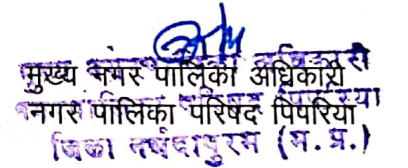 मुख्य नगर पालिका अधिकारी
नगर पालिका परिषद पिपरिया
जिला नर्मदापुरम (म.प्र.)